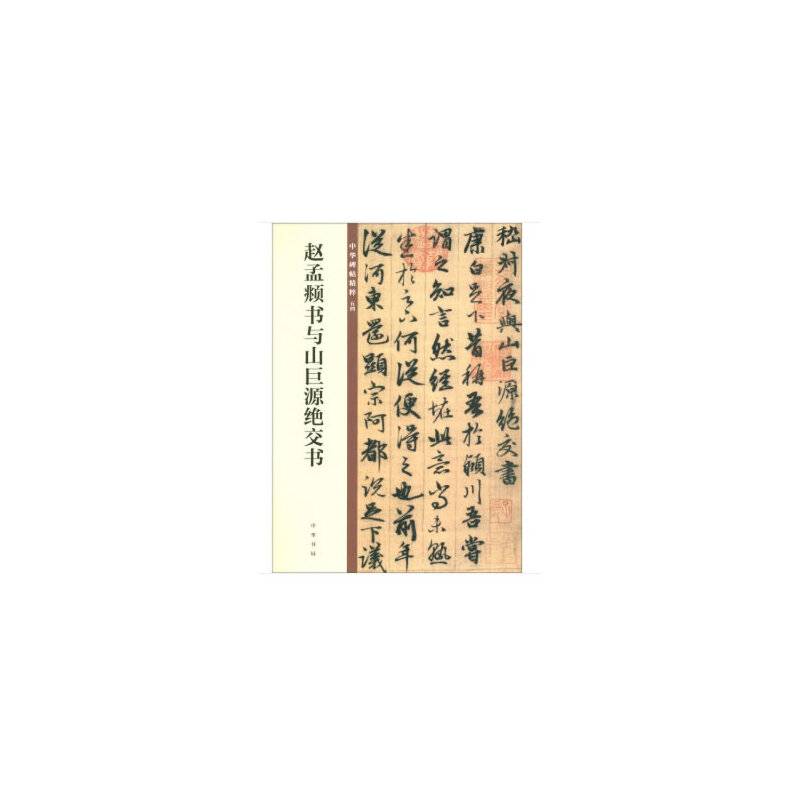 赵孟頫书与山巨源绝交书
中华书局
中华碑帖精粹 五四
嵇叔夜與山巨源絶交書
康白足下昔稱吾於潁川吾嘗
謂之知言然經怪此意尚未熟
悉於之六何從便得之也前年
從河東還顯宗阿都說足下議